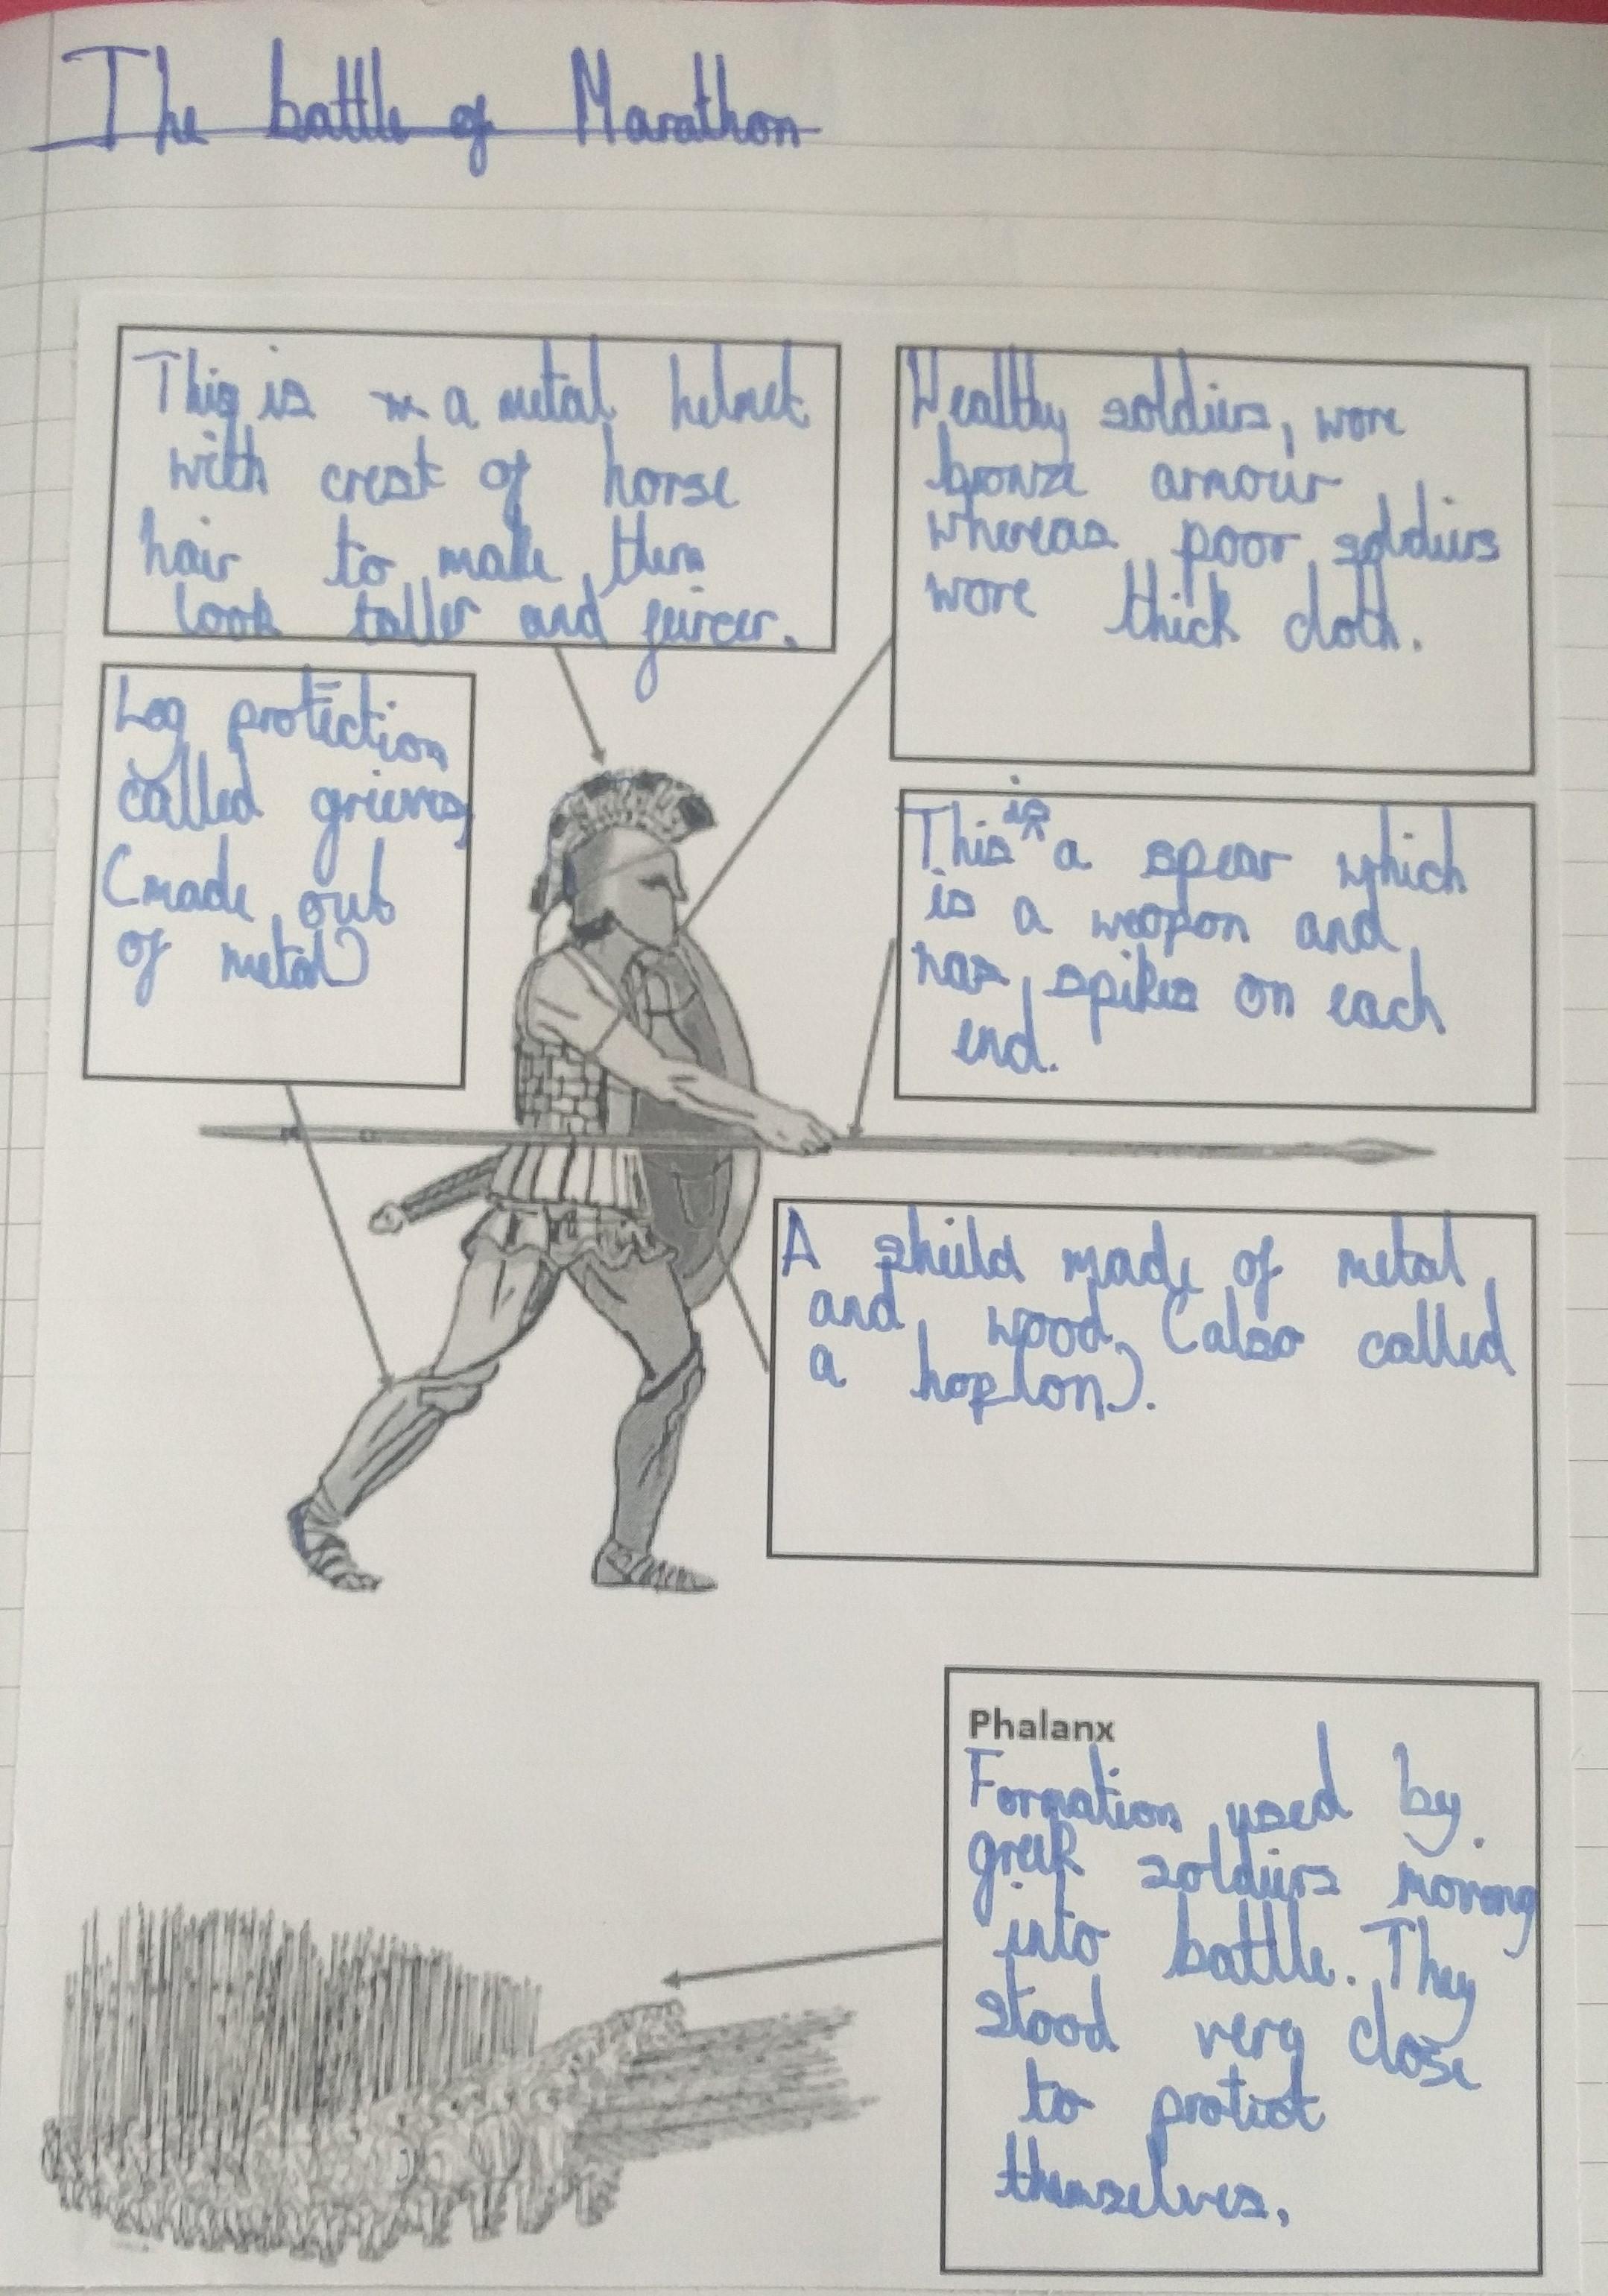 The battle of Marathon
This is a metal helmet
with crest of horse
hair to make them
look taller and feircer.
Wealthy soldiers, wore
bronze armour
whereas poor soldiers
wore thick cloth.
Leg protection
called grieves,
(made out
of metal)
This is a spear which
is a weapon and
has spikes on each
end.
A sheild made of metal
and wood (also called
a hoplon).
Phalanx
Formation used by
greek soldiers moving
into battle. They
stood very close
to protect
themselves.